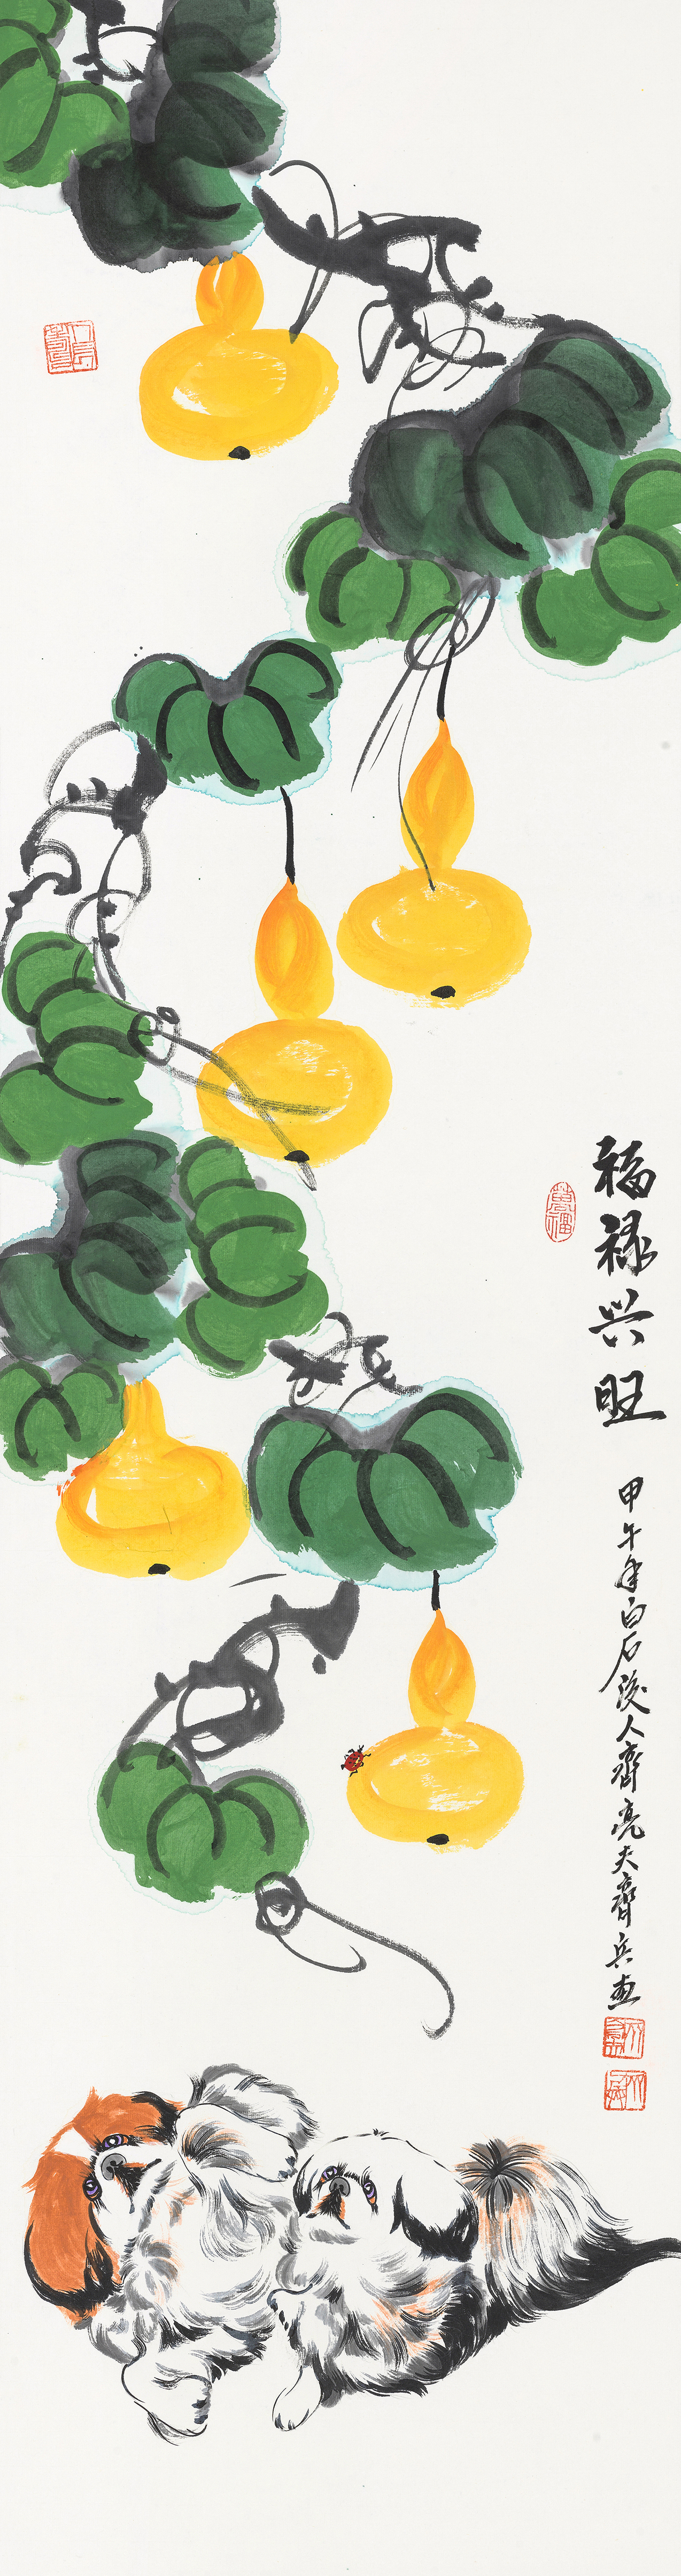 福禄兴旺
甲午年白石后人齐亮夫齐兵画